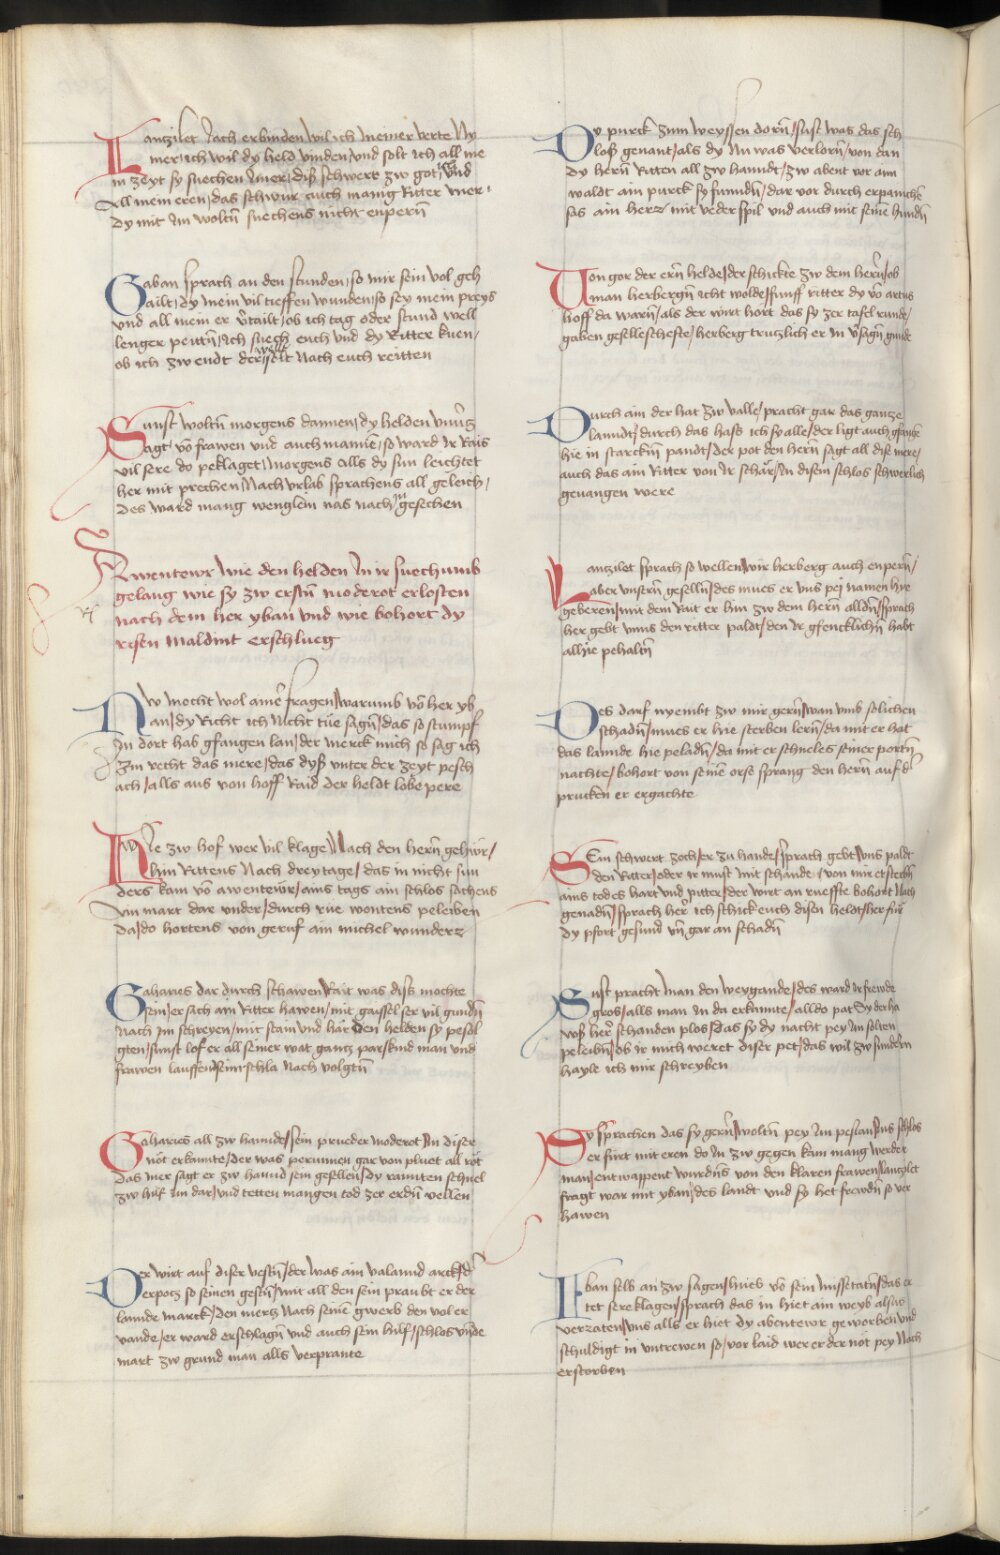 Lantzilet Nach erbinden wil ich meiner verte Ny
mer ich wil dy held vinden und solt ich all me
in zeyt sy suechen Nmer, diß schwert zw got und
All mein eren, das schwur auch manig Ritter mer
dy mit Im woltn̄ suechens nicht enpern̄
Gaban sprach an den stunden, so mir sein vol geh
ailt, dy mein vil tieffen wunden, so sey mein preys
und all mein er v̄tailt, ob ich tag oder stund well
lenger peittn̄, Ich suech euch und dy Ritter kuen,
ob ich zw endt der welt solt nach euch reitten
Sunst woltn̄ morgens dannen, dy helden unv̄z
sagt vō frawen und auch manne, so ward Ir Rais
vil sere do peklaget, morgens alls dy sun leichtet
her mit prechen, Nach urlab sprachens all geleich,
des ward mang wenglein nas nach in gesechen
Awentewr wie den helden In ir suechumb
gelang wie sy zw erstn̄ moderot erlosten
nach dem her yban und wie bohort dy
risen maldint erschlueg
Nw mocht wol aine͂ fragen, warumb vō her yb
an, dy Richt ich Nicht tue sagn̄, das so stumpf
In dort hab gfangen lan, der merck mich so sag ich
Im recht das mere, das dyß unter der zeyt pesch
ach, alls aus von hoff Raid der heldt lobepere
Wie zw hof wer vil klage Nach den hern̄ gehor,
hin Rittens Nach drey tage, das in nicht sun
ders kam vō awentewr, ains tags ain schlos sachens
Am mart dar under, durch rue wontens peleiben
Da, do hortens von geruf ain michel wunder
Gaharies dar durch schawen Rait was diss mochte
sein, er sach ain Ritter hawen, mit gaissel ser vil hundn̄
nach Im schreyen, mit stain und har den helden sy pesol
gten, sunst lof er all seiner wat gantz par, kind man und
frawen lauffend seiner schla nach volgtn̄
Gaharies all zw handt, sein prueder moderot In diser
not erkannte, der was perunnen gar von pluet all rot
das mer sagt er zw hannd sein gesellen, dy rannten schnel
zw hilf Im dar, und tetten mangen tod zer erdn̄ vellen
Der wirt auf diser vestn̄, der was ain valannd arck, d͂
verpotz so seinen gestn̄, mit all den sein praubt er der
lannde marck, den mertz nach seine͂ gwerb den vol er
vande, er ward erschlagn̄ und auch sein hilf, schlos unde
mart zw grund man alls verprante
Dy purck zum weyssen dorn̄, sust was das sch
loß genant, als dy Nu was verlorn̄, von dan
dy hern̄ Ritten all zw hanndt, zw abent vor aim
waldt ain purck sy funndn̄, dar vor durch erpaniche͂
sas ain herz mit veder spil und auch mit seine͂ hundn̄
Von gor der ern̄ helde, der schickte zw dem hern̄, ob
man herbergn̄ icht wolde, funff ritter dy vō artus
hoff da warn̄, als der wirt hort das sy zer tafel runde,
gaben geselleschefte, herberg trutzlich er In v̄sagn̄ gunde
Durch ain der hat zw valle, pracht gar das gantze
lanndt, durch das hass ich sy alle, der ligt auch gfange
hie in starckn̄ pandt, der pot den hern̄ sagt all dise mere,
auch das ain Ritter von Ir schar, In disem schlos schwerlich
gevangen were
Lantzilet sprach so wellen wir herberg auch enpern̄,
aber unsern̄ geselln̄, des mues er uns pej namen hie
geberen, mit dem Rait er hin zw dem hern̄ alldn̄, sprach
her gebt unns den ritter paldt, den Ir gfencklichn̄ habt
allhie pehaltn̄
Des darf nyembt zw mir gern̄, wan umb solichen
schadn̄, mues er hie sterben lern̄, da mit er hat
das lannde hie peladn̄, da mit er schneles seiner portn̄
nachte, bohort von seine͂ orse sprang den hern̄ auf d͂
prucken er ergachte
Sein schwert zoch, er zu hande, sprach gebt uns paldt
den Ritter, oder Ir must mit schande, von mir etsterbn̄
ains todes hart und pitter, der wirt an rueffte bohort nach
genadn̄, sprach her ich schick euch disen heldt, her für
dy pfort gesund un̄ gar an schadn̄
Sust pracht man den weygande, des ward Ir frewde
gros, alls man In da erkannte, alldo pat sy der ha
uß her͂ schanden plos, das sy dy nacht pey Im solten
peleibn̄, ob ir mich weret diser pet, das wil zw sundern
hayle ich mir schreyben
Sy sprachen das sy gern̄, woltn̄ pey Im pestan, Ins schlos
er furt mit eren do In zw gegen kam mang werder
man, entwappent wurdn̄s von den klaren frawen, lantzilet
fragt war mit yban, des landt und sy het frewdn̄ so ver
hawen
Iban selb an zw sagen, hueb vō sein missetatn̄, das er
tet sere klagen, sprach das in hiet ain weyb alsus
verraten, uns alls er hiet dy abentewr geworben und
schuldigt in untrewen so, vor laid wer er der not pey nach
erstorben